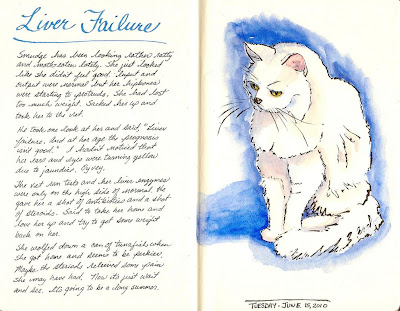 Liver Failure
Smudge has been looking rather ratty
and moth-eaten lately. She just looked
like she didn't feel good. Input and
output were normal but her hipbones
were starting to protrude. She had lost
too much weight. Sacked her up and
took her to the vet.
He took one look at her and said, "Liver
failure. And at her age the prognosis
isn't good." I hadn't noticed that
her ears and eyes were turning yellow
due to jaundice. Oyvey.
The vet ran tests and her liver enzymes
were only on the high side of normal. He
gave her a shot of antibiotics and a shot
of steroids. Said to take her home and
love her up and try to get some weight
back on her.
She wolfed down a can of tunafish when
she got home and seems to be perkier.
Maybe the steroids relieved some pain
she may have had. Now it's just wait
and see. It's going to be a long summer.
TUESDAY - JUNE 15, 2010